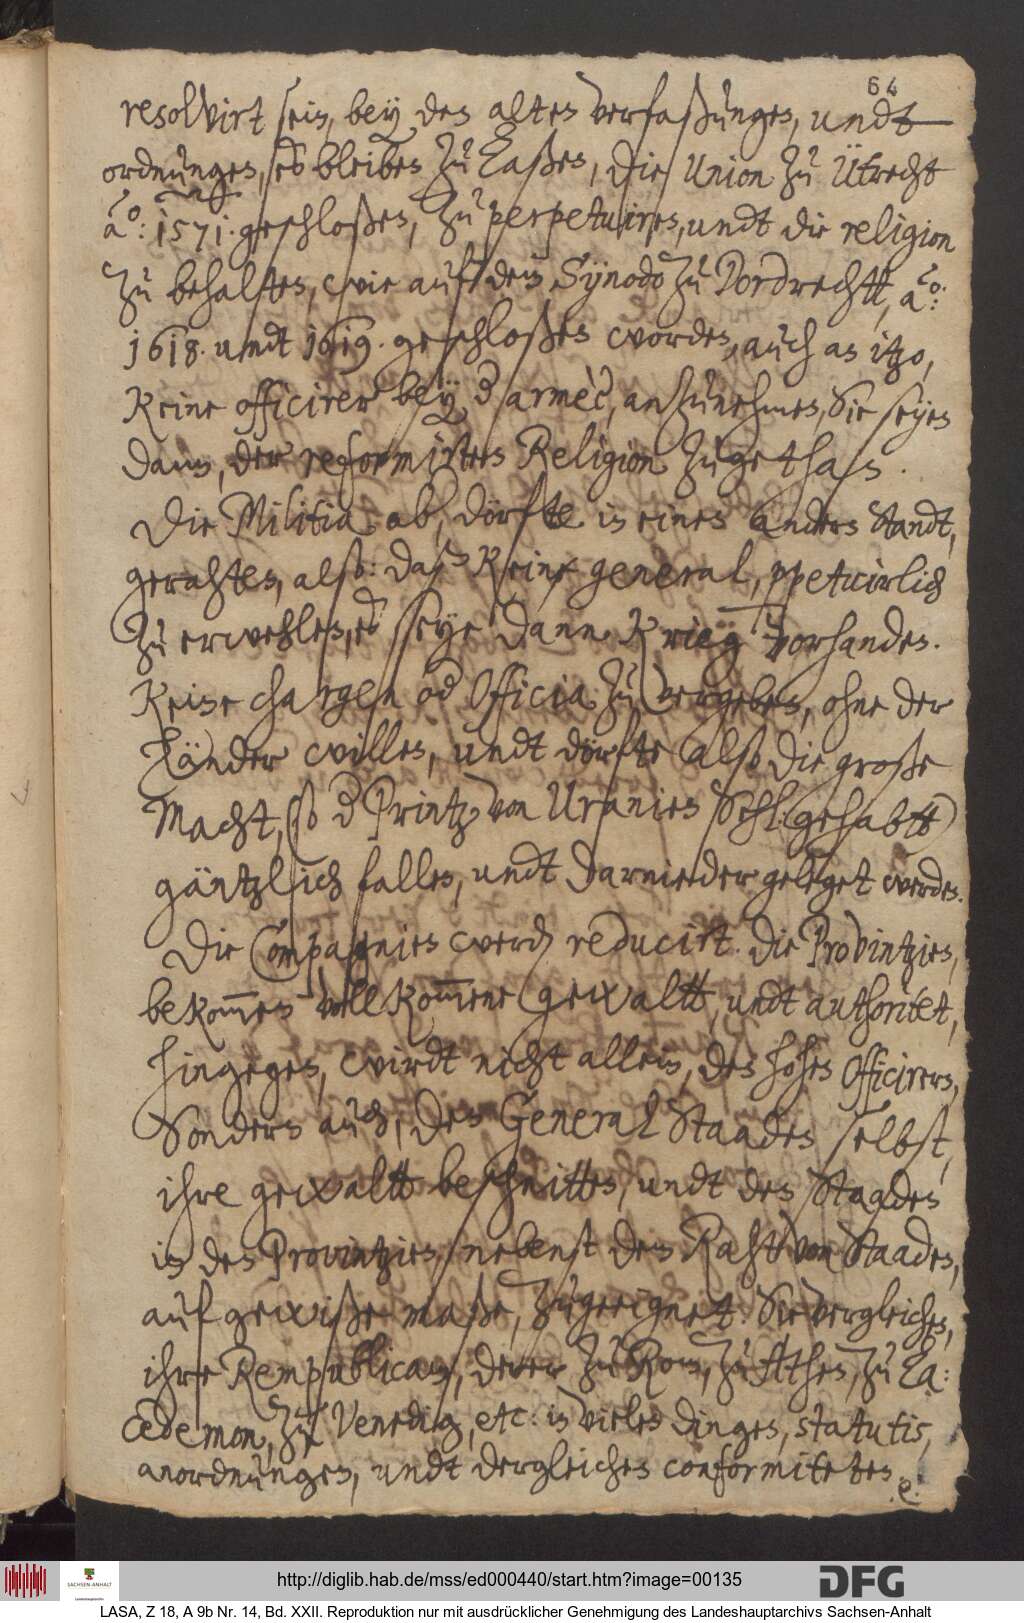 64
resolvirt sein, bey den alten verfaßungen, undt
ordnungen, es bleiben zu laßen, die Union zu Ütrecht
ao: 1571. geschloßen, zu perpetuiren, undt die religion
zu behalten, wie auf dem Synodo zu Dordrechtt, ao:
1618. undt 1619. geschloßen worden, auch an itzo,
Keine officirer bey d armèe, anzunehmen, Sie seyen
dann, der reformirten Religion zugethan.
Die Militia ab, dörfte in einen andern Standt,
gerahten, also: daß Keine general, ppetuirlich
zu erwehlen, es seye dann Krieg vorhanden.
Keine chargen od Officia zu vergeben, ohne der
Länder willen, undt dörfte also die große
Macht, (so d Printz von Uranien Sehl: gehabtt)
gäntzlich fallen, undt darnieder geleget werden.
Die Compagnien werdn reducirt. Die Provintzien,
bekom̄en vollkom̄ene gewaltt, undt authoritet,
hingegen, wirdt nicht allein, den hohen Officirern,
Sondern auch, den General Staaden selbst,
ihre gewaltt beschnitten, undt den Staaden
in den Provintzien, nebenst dem Raht von Staaden,
auf gewiße maße, zugeeignet. Sie vergleichen,
ihre Rempublicam, derer zu Rom, zu Athen, zu La:
cedemon, zu Venedig, etc: in vielen dingen, statutis,
anordnungen, undt dergleichen conformiteten.
e.
http://diglib.hab.de/mss/ed000440/start.htm?image=00135
SACHSEN-ANHALT
DFG
LASA, Z 18, A 9b Nr. 14, Bd. XXII. Reproduktion nur mit ausdrücklicher Genehmigung des Landeshauptarchivs Sachsen-Anhalt